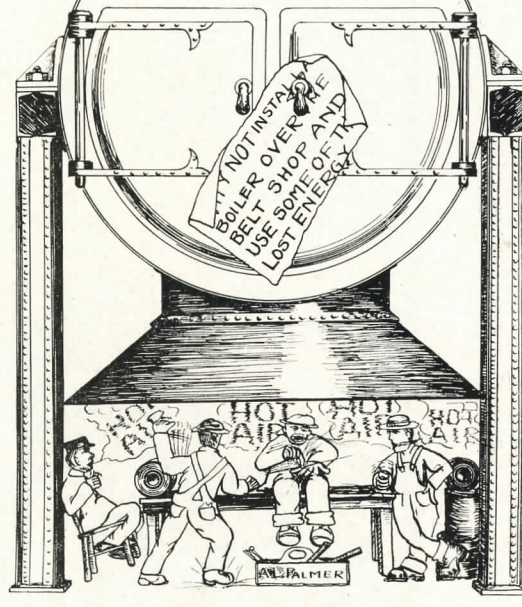 NOT INSTAL
BOILER OVER
BELT SHOP AND
USE SOME OF
LOST ENERGY
HOT
AIR
HOT
AIR
HOT
AIR
HOT
AIR
PALMER